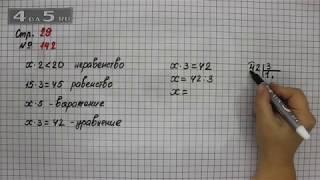 4DA5.RU
Стр. 29
№ 142
x · 2 < 20 неравенство
15 · 3 = 45 равенство
x · 5 - выражение
x · 3 = 42 - уравнение
x · 3 = 42
x = 42 : 3
x =
42 3
1